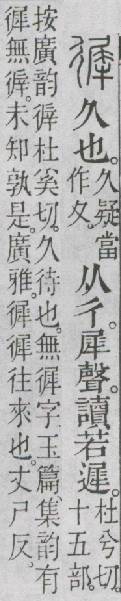 徲久也。久疑當
作夂。从彳犀聲。讀若遲。杜兮切。
十五部。
按廣韵䘐杜奚切。久待也。無徲字。玉篇、集韵有
徲無䘐。未知孰是。廣雅。徲徲往來也。丈尸反。